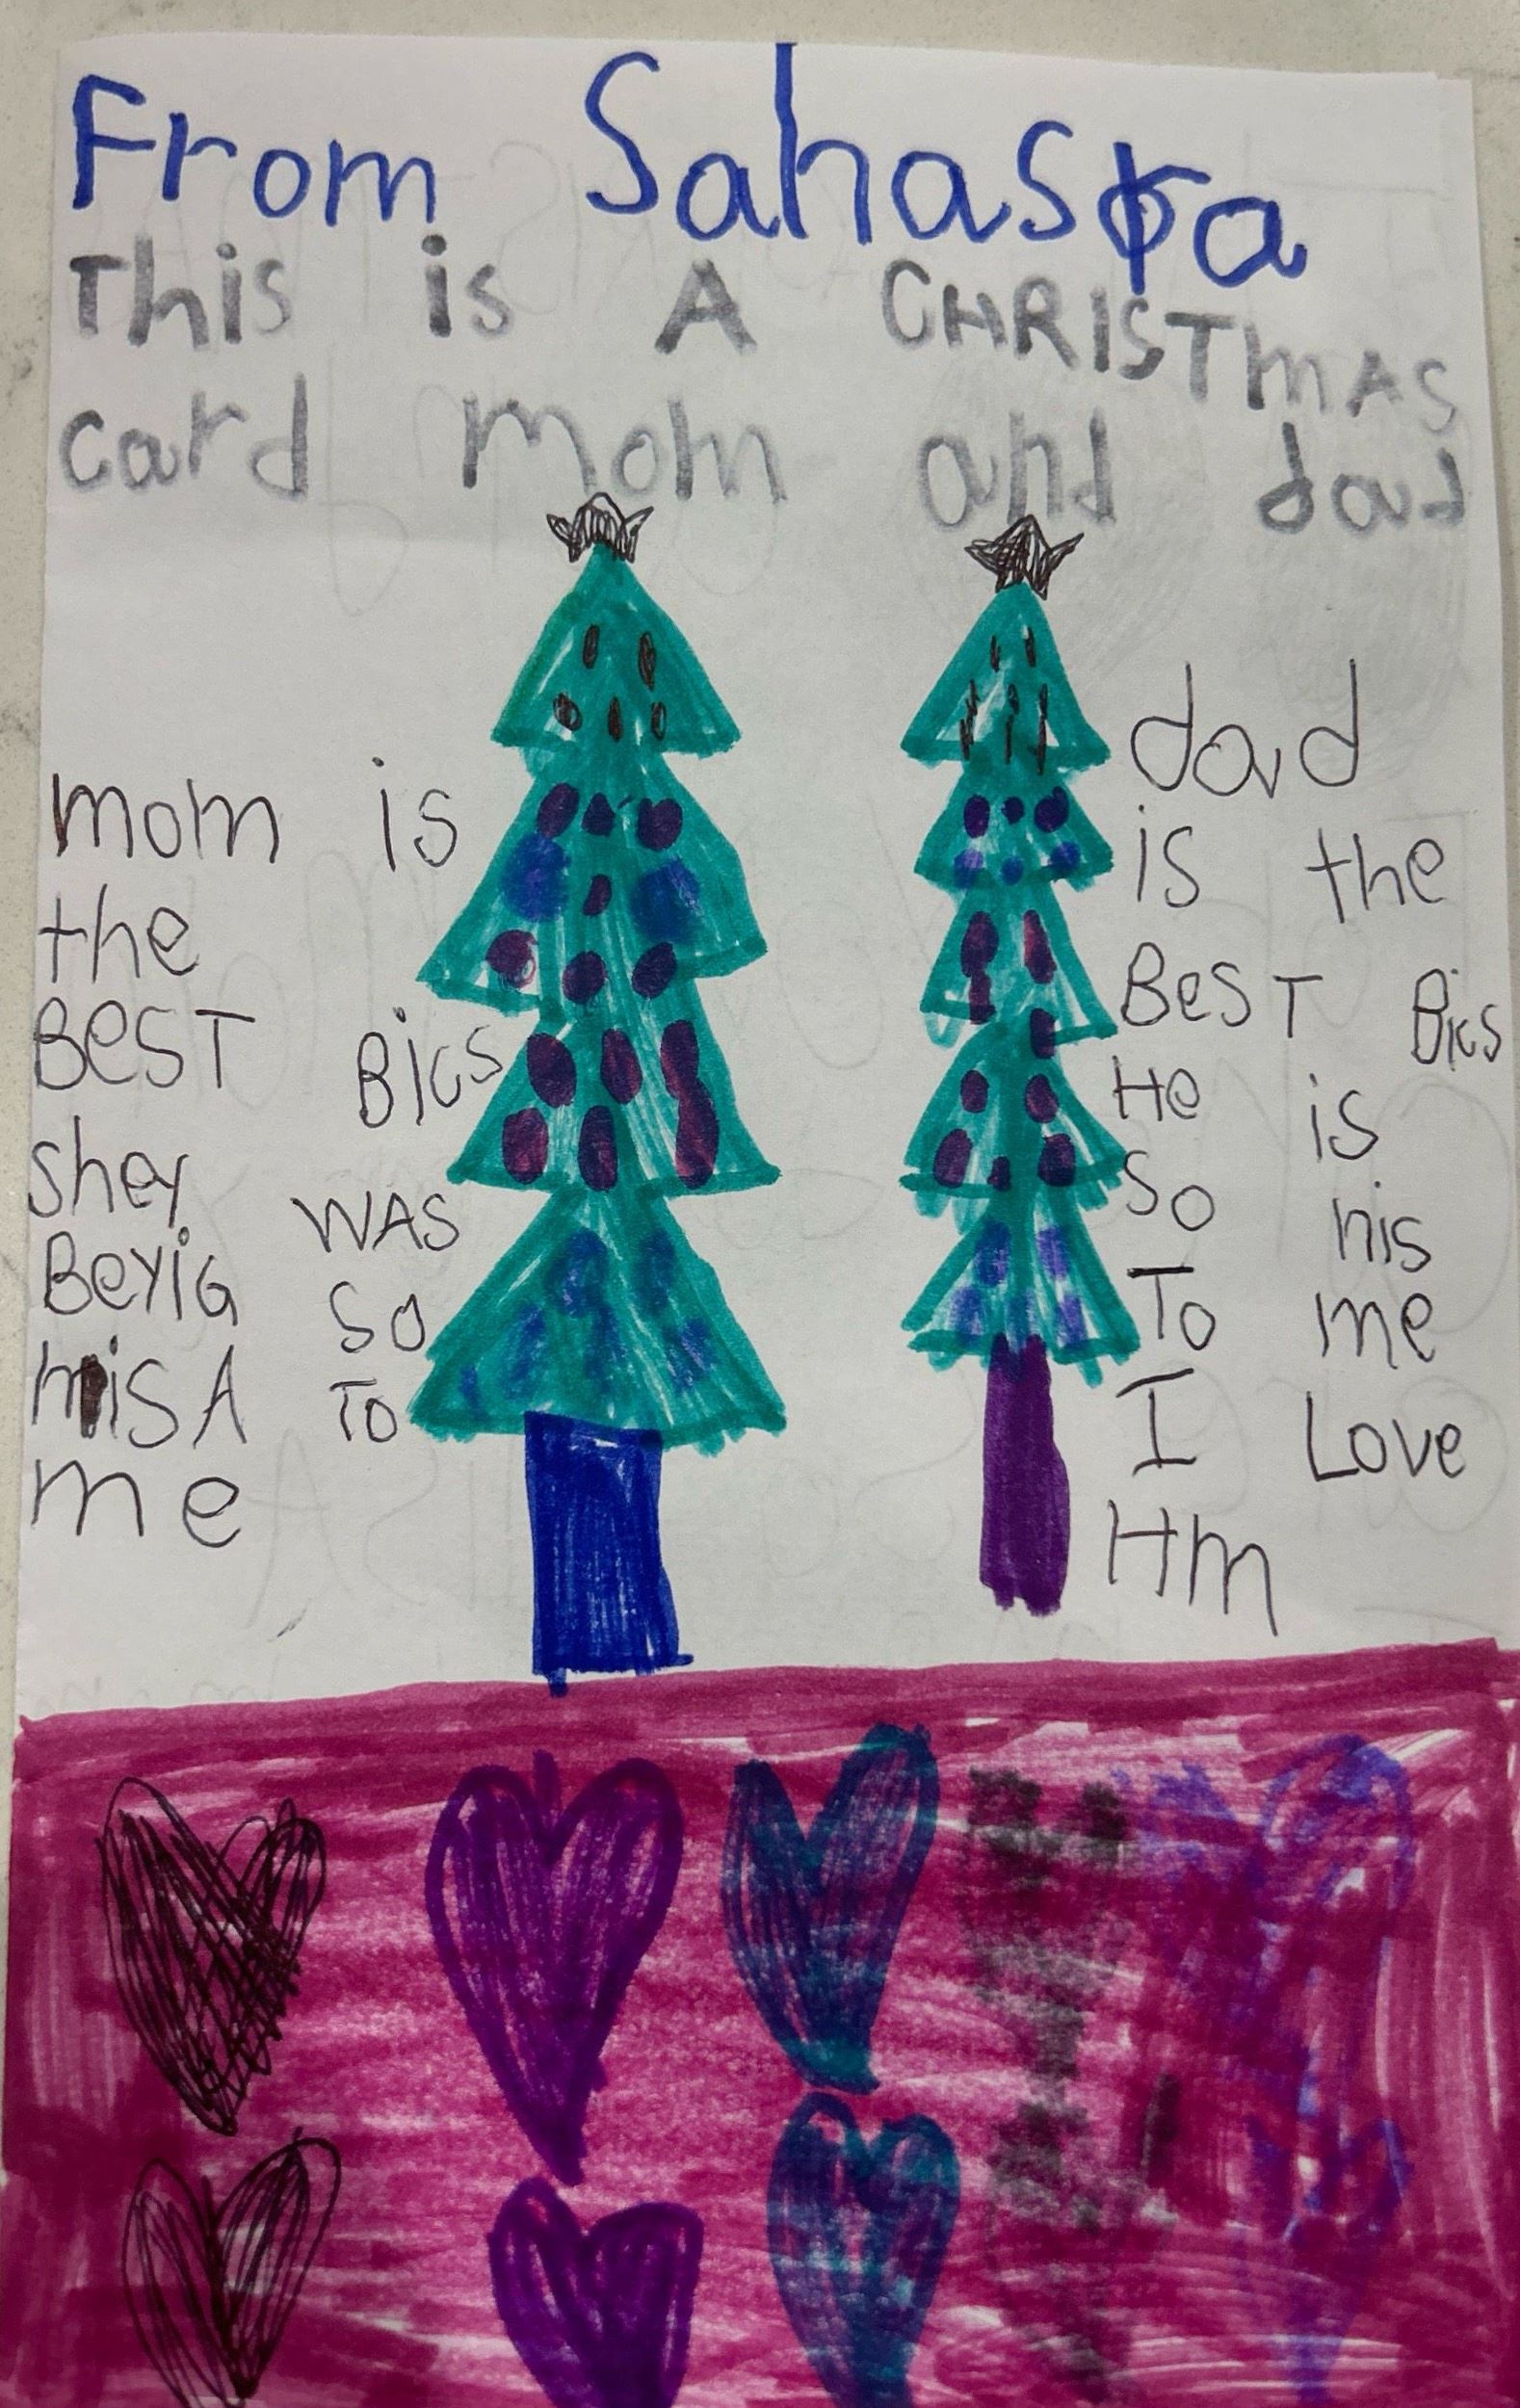 From Sahasra
This is A CHRISTMAS
card mom and dad
mom is
the
BEST Bics
shey WAS
BeyiG so
misA To
me
dad
is the
BesT Bics
He is
So nis
To me
I Love
Hm